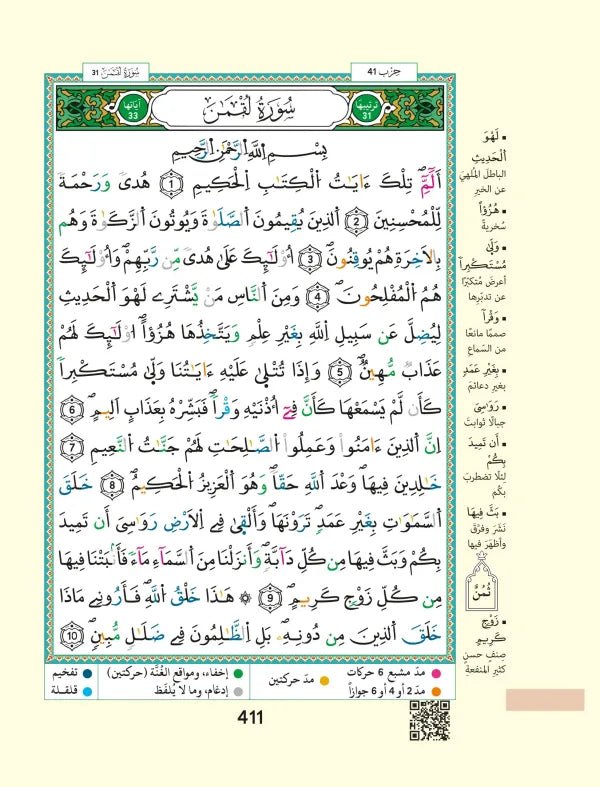 سُورَةُ لُقْمَٰنَ 31
حِزْب 41
آيَاتُهَا 33
سُورَةُ لُقْمَٰنَ
تَرْتِيبُهَا 31
بِسْمِ اِ۬للَّهِ اِ۬لرَّحْمَٰنِ اِ۬لرَّحِيمِ
أَلَٓمِّٓۖ تِلْكَ ءَايَٰتُ اُ۬لْكِتَٰبِ اِ۬لْحَكِيمِ 1 هُدىٗ وَرَحْمَةٗ
لِّلْمُحْسِنِينَ 2 اَ۬لذِينَ يُقِيمُونَ اَ۬لصَّلَوٰةَ وَيُوتُونَ اَ۬لزَّكَوٰةَ وَهُم
بِالَاخِرَةِ هُمْ يُوقِنُونَۖ 3 أُوْلَٰٓئِكَ عَلَىٰ هُدىٗ مِّن رَّبِّهِمْۖ وَأُوْلَٰٓئِكَ
هُمُ اُ۬لْمُفْلِحُونَۖ 4 وَمِنَ اَ۬لنَّاسِ مَنْ يَّشْتَرِے لَهْوَ اَ۬لْحَدِيثِ
لِيُضِلَّ عَن سَبِيلِ اِ۬للَّهِ بِغَيْرِ عِلْمٖ وَيَتَّخِذُهَا هُزُؤاًۖ ا۟وْلَٰٓئِكَ لَهُمْ
عَذَابٞ مُّهِينٞۖ 5 وَإِذَا تُتْلَىٰ عَلَيْهِ ءَايَٰتُنَا وَلَّىٰ مُسْتَكْبِراٗ
كَأَن لَّمْ يَسْمَعْهَا كَأَنَّ فِےٓ أُذْنَيْهِ وَقْراٗۖ فَبَشِّرْهُ بِعَذَابٍ اَلِيمٍۖ 6
اِنَّ اَ۬لذِينَ ءَامَنُواْ وَعَمِلُواْ اُ۬لصَّٰلِحَٰتِ لَهُمْ جَنَّٰتُ اُ۬لنَّعِيمِ 7
خَٰلِدِينَ فِيهَا وَعْدَ اَ۬للَّهِ حَقّاٗۖ وَهُوَ اَ۬لْعَزِيزُ اُ۬لْحَكِيمُۖ 8 خَلَقَ
اَ۬لسَّمَٰوَٰتِ بِغَيْرِ عَمَدٖ تَرَوْنَهَاۖ وَأَلْقَىٰ فِے اِ۬لَارْضِ رَوَٰسِيَ أَن تَمِيدَ
بِكُمْ وَبَثَّ فِيهَا مِن كُلِّ دَآبَّةٖۖ وَأَنزَلْنَا مِنَ اَ۬لسَّمَآءِ مَآءٗ فَأَنۢبَتْنَا فِيهَا
مِن كُلِّ زَوْجٖ كَرِيمٍۖ 9 ۞ هَٰذَا خَلْقُ اُ۬للَّهِۖ فَأَرُونِے مَاذَا
خَلَقَ اَ۬لذِينَ مِن دُونِهِۦۖ بَلِ اِ۬لظَّٰلِمُونَ فِے ضَلَٰلٖ مُّبِينٖۖ 10
▪ لَهْوَ
اَ۬لْحَدِيثِ
الباطلَ المُلْهِيَ
عن الخيرِ
▪ هُزُؤاً
سُخريةً
▪ وَلَّىٰ
مُسْتَكْبِراٗ
أعرضَ مُتكبّرًا
عن تدبّرِها
▪ وَقْراٗ
صممًا مانعًا
من السّماعِ
▪ بِغَيْرِ عَمَدٖ
بغيرِ دعائمَ
▪ رَوَٰسِيَ
جبالًا ثوابتَ
▪ أَن تَمِيدَ
بِكُمْ
لئلّا تضطربَ
بكم
▪ بَثَّ فِيهَا
نَشَرَ وفرَّقَ
وأظهرَ فيها
ثُمُنٌ
▪ زَوْجٖ
كَرِيمٍ
صنفٍ حسنٍ
كثيرِ المنفعةِ
مدّ مشبع 6 حركات
مدّ 2 أو 4 أو 6 جوازاً
مدّ حركتين
إخفاء، ومواقع الغُنَّة (حركتين)
إدغام، وما لا يُلفَظ
تفخيم
قلقلة
411